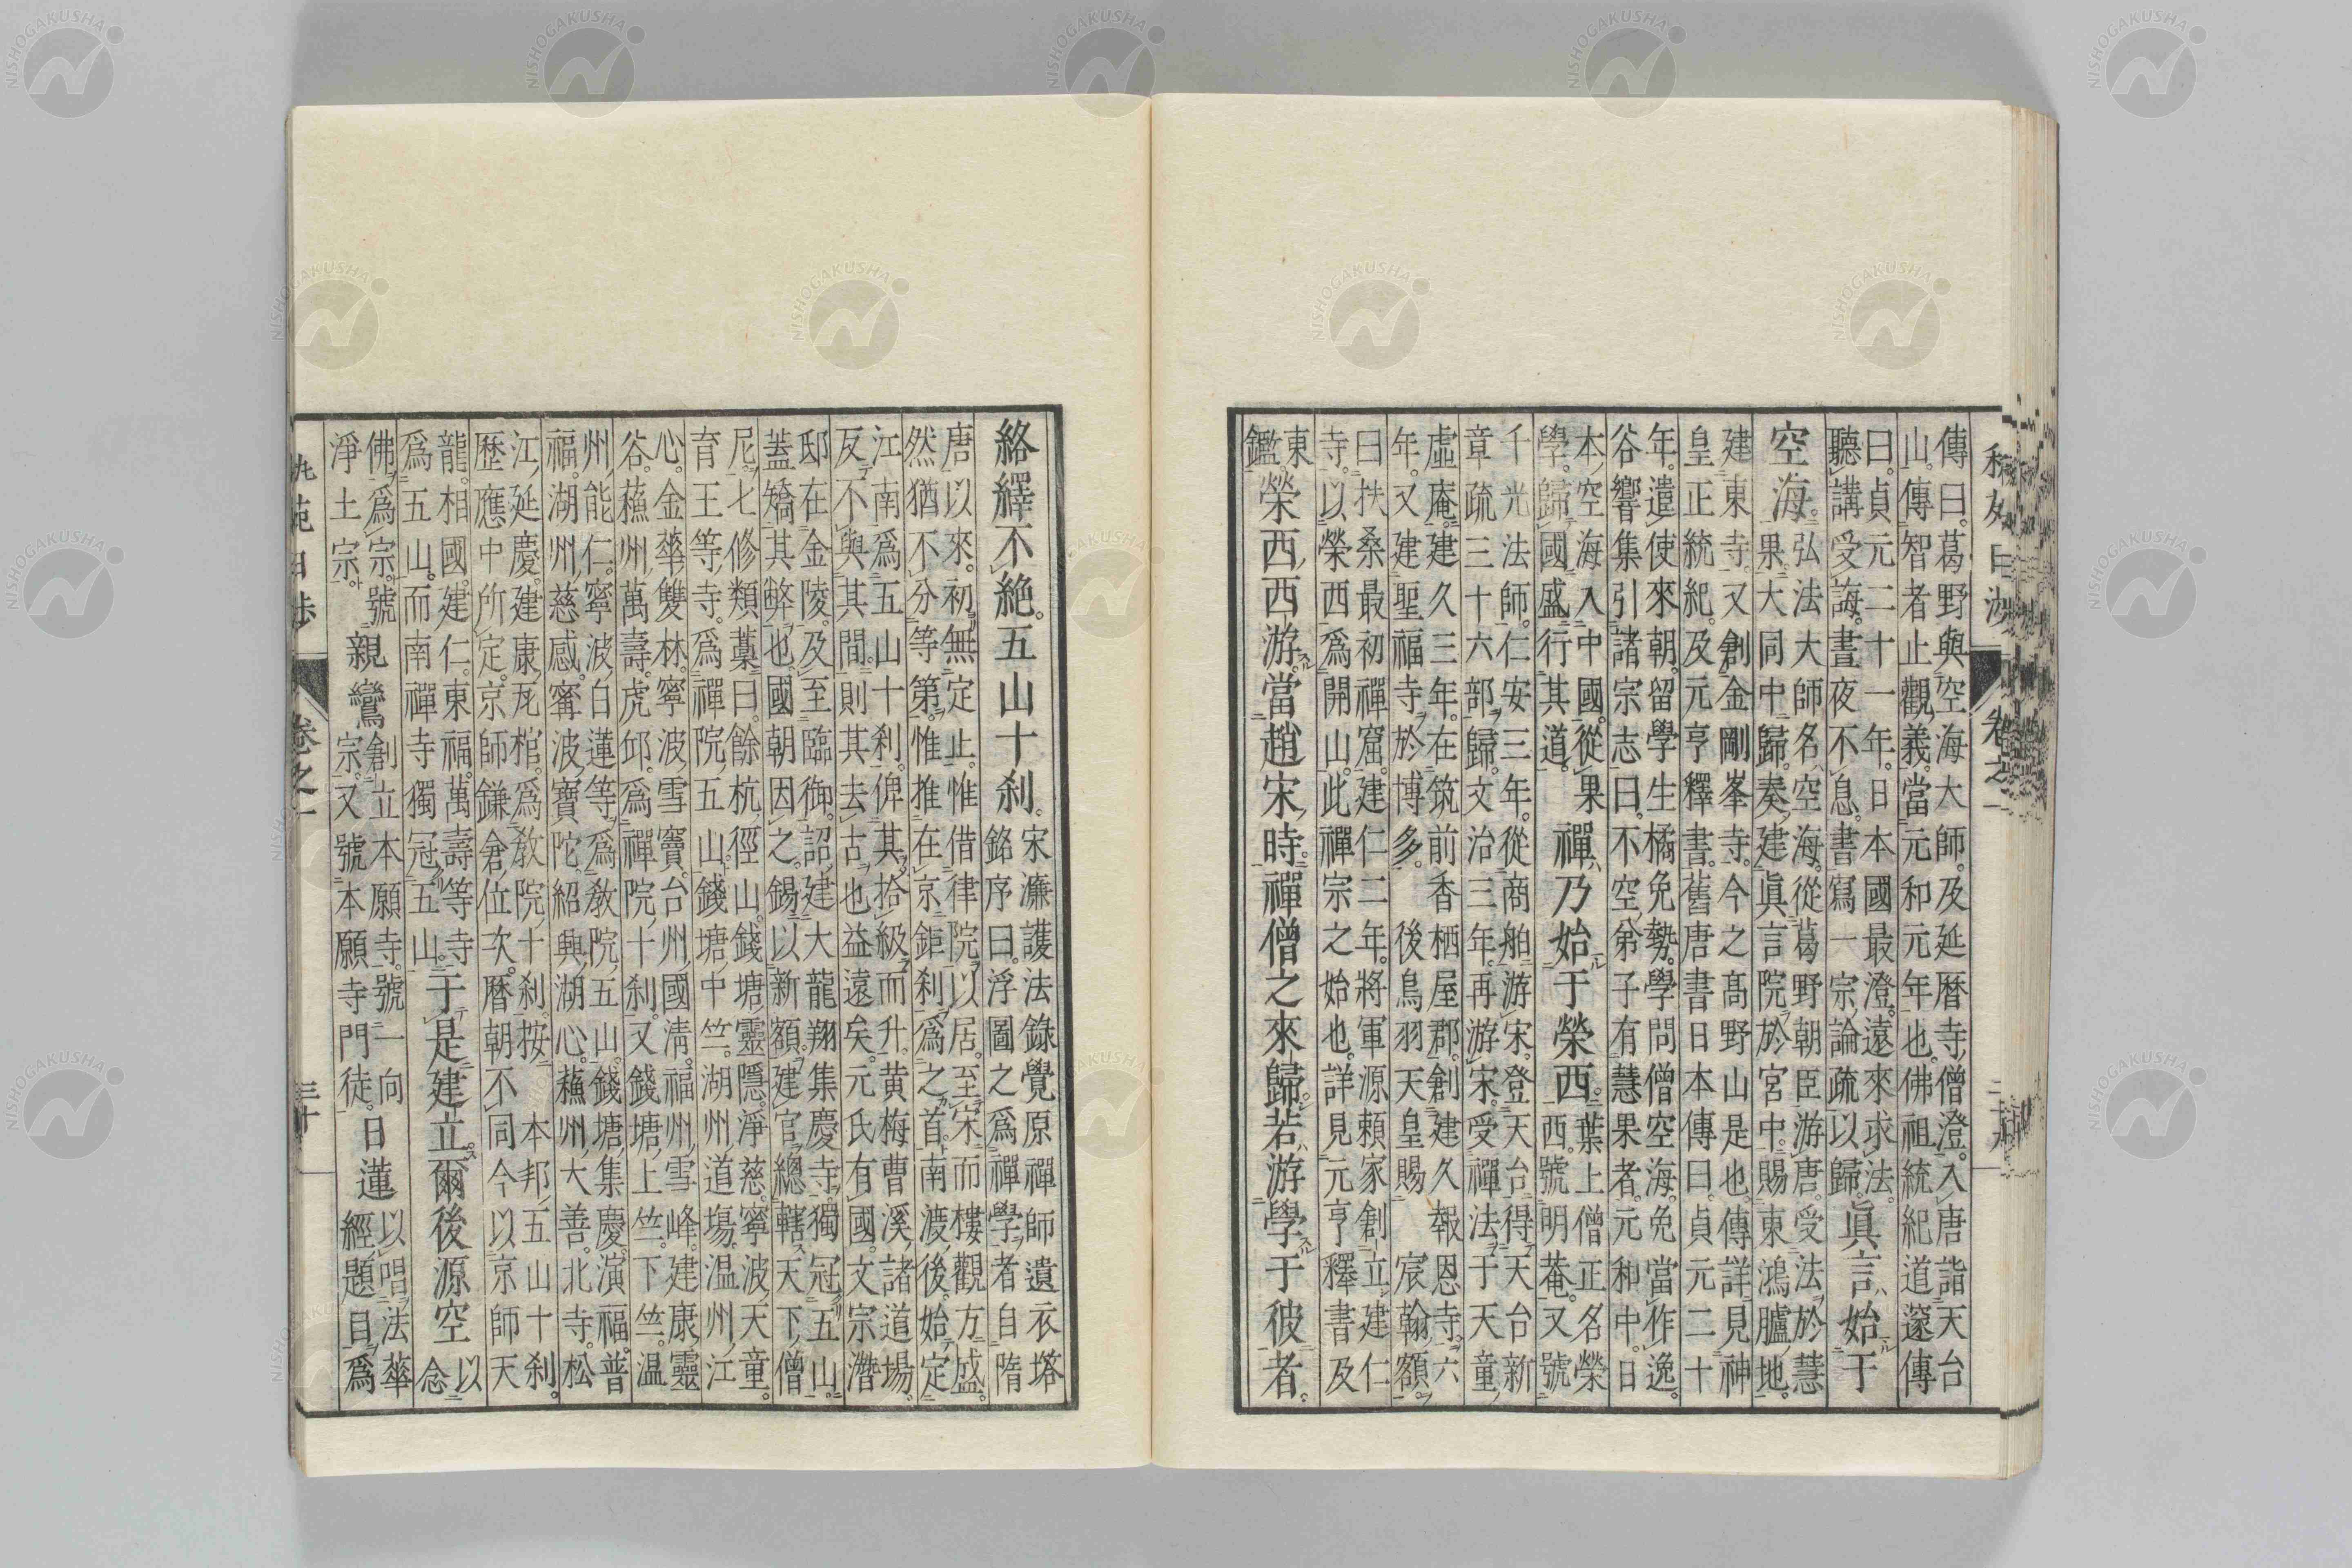 傳曰。葛野與空海大師。及延暦寺僧澄。入唐詣天台
山。傳智者止觀義。當元和元年也。佛祖統紀道邃傳
曰。貞元二十一年。日本國最澄。遠來求法。
聽講受誨。晝夜不息。書寫一宗論疏以歸。
眞言ハ始ル于
空海。
弘法大師名空海。從葛野朝臣游唐。受法於慧
果。大同中歸。奏建眞言院於宮中。賜東鴻臚地。
建東寺。又創金剛峯寺。今之髙野山是也。傳詳見神
皇正統紀。及元亨釋書。舊唐書日本傳曰。貞元二十
年。遣使來朝。留學生橘免勢。學問僧空海。免當作逸。
谷響集引諸宗志曰。不空弟子有慧果者。元和中。日
本空海入中國。從果
學。歸國盛行其道。
禪ハ乃始于榮西。
葉上僧正名榮
西。號明菴。又號
千光法師。仁安三年。從商舶游宋。登天台。得天台新
章疏三十六部歸。文治三年。再游宋。受禪法于天童
虛庵。建久三年。在筑前香栖屋郡。創建久報恩寺。六
年。又建聖福寺於博多。 後鳥羽天皇賜 宸翰額。
曰扶桑最初禪窟。建仁二年。將軍源頼家創立建仁
寺。以榮西爲開山。此禪宗之始也。詳見元亨釋書及
東
鑑。
榮西西游。當趙宋時。禪僧之來歸。若游學于彼者。
卷之一
絡繹不絕。五山十刹。
宋濂護法錄覺原禪師遺衣塔
銘序曰。浮圖之爲禪學者自隋
唐以來。初無定止。惟借律院以居。至宋而樓觀方盛。
然猶不分等第。惟推在京鉅刹爲之首。南渡後。始定
江南爲五山十刹。俾其拾級而升。黄梅曹溪諸道場
反不與其間。則其去古也益遠矣。元氏有國。文宗潛
邸在金陵。及至臨御。詔建大龍翔集慶寺。獨冠五山。
蓋矯其弊也。國朝因之。錫以新額。建官總轄天下僧
尼。七修類藁曰。餘杭徑山。錢塘靈隱。淨慈。寧波天童。
育王等寺。爲禪院五山。錢塘中竺。湖州道塲。温州江
心。金華雙林。寧波雪竇。台州國清。福州雪峰。建康靈
谷。蘓州萬壽。虎邱。爲禪院十刹。又錢塘上竺。下竺。温
州能仁。寧波白蓮等。爲敎院五山。錢塘集慶。演福。普
福。湖州慈感。寗波寶陀。紹興湖心。蘓州大善。北寺。松
江延慶。建康瓦棺。爲敎院十刹。按 本邦五山十刹。
歴應中所定。京師鎌倉位次。暦朝不同。今以京師天
龍。相國。建仁。東福。萬壽等寺
爲五山。而南禪寺獨冠五山。
于是建立。爾後源空
以
念
佛爲宗。號
淨土宗。
親鸞
創立本願寺。號一向
宗。又號本願寺門徒。
日蓮
以唱法華
經題目爲
卷之一
三十
NISHOGAKUSHA